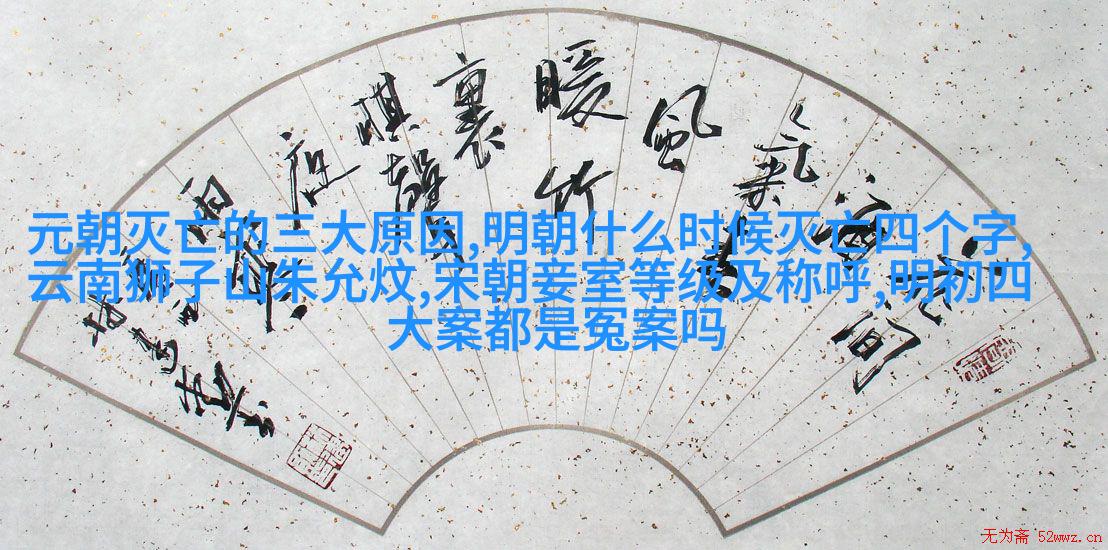 花間
酒
氣春
風
暖竹
裏
棋聲
夜
雨寒
元朝灭亡的三大原因,明朝什么时候灭亡四个字,
云南狮子山朱允炆,宋朝妾室等级及称呼,明初四
大案都是冤案吗
无为斋 52wwz.cn